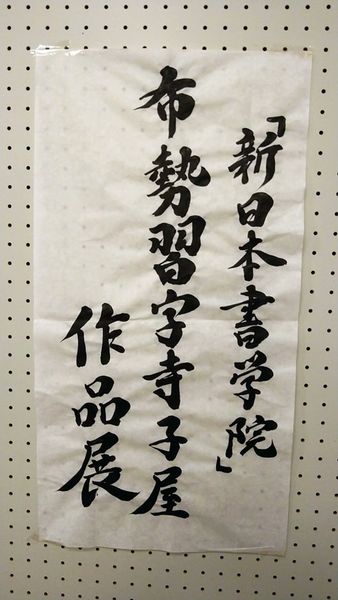 「新日本書学院」
布勢習字寺子屋
作品展